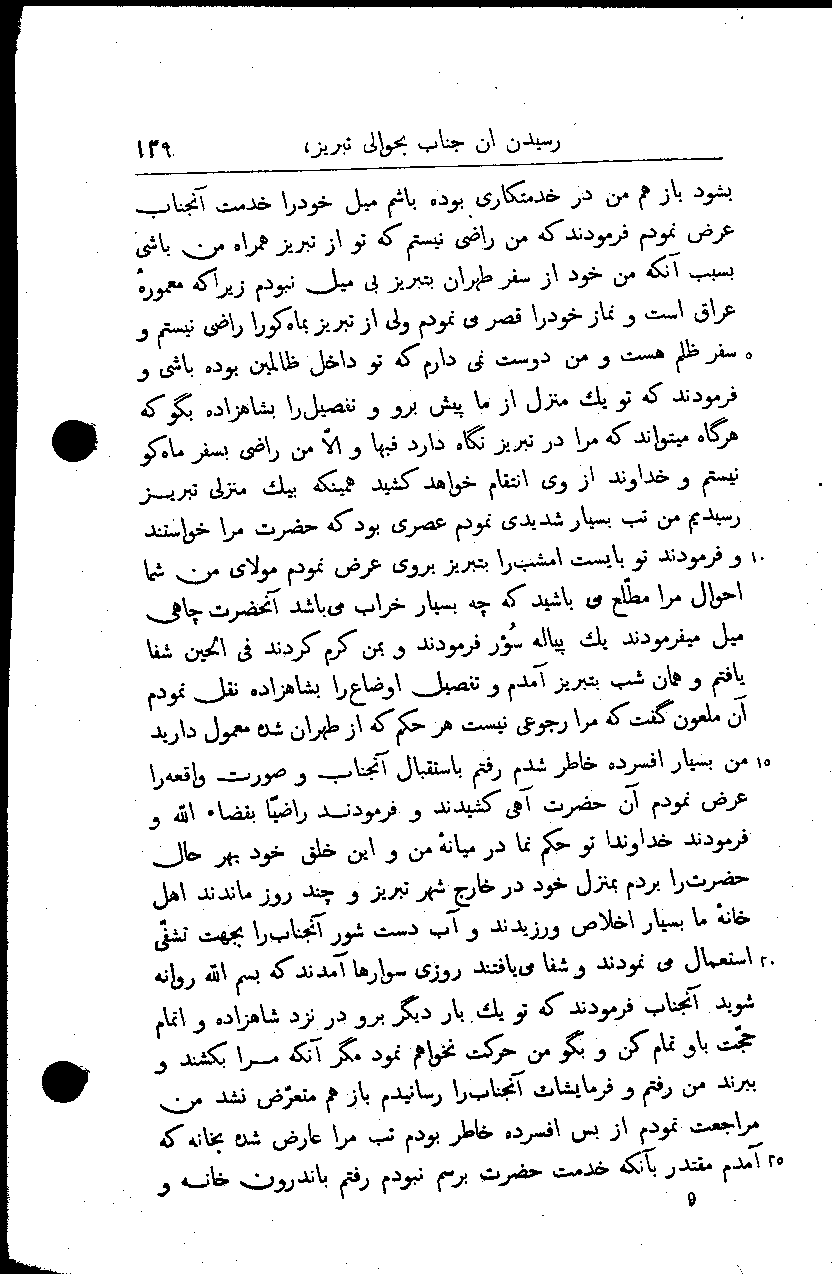 رسیدن ان جناب بحوالی تبریز، ۱۲۹
بشود باز هم من در خدمتکاری بوده باشم میل خودرا خدمت آنجناب
عرض نمودم فرمودند که من راضی نیستم که تو از تبریز همراه من باشی
بسبب آنکه من خود از سفر طهران بتبریز بی میل نبودم زیراکه معمورهٔ
عراق است و نماز خودرا قصر می نمودم ولی از تبریز بماه‌کورا راضی نیستم و
۵ سفر ظلم هست و من دوست نمی دارم که تو داخل ظالمین بوده باشی و
فرمودند که تو یك منزل از ما پیش برو و تفصیل‌را بشاهزاده بگو که
هرگاه میتواند که مرا در تبریز نگاه دارد فبها و الّا من راضی بسفر ماه‌کو
نیستم و خداوند از وی انتقام خواهد کشید همینکه بیك منزلی تبریز
رسیدیم من تب بسیار شدیدی نمودم عصری بود که حضرت مرا خواستند
۱۰ و فرمودند تو بایست امشب‌را بتبریز بروی عرض نمودم مولای من شما
احوال مرا مطّلع می باشید که چه بسیار خراب می‌باشد آنحضرت چاهی
میل میفرمودند یك پیاله سُؤر فرمودند و بمن کرم کردند فی الحین شفا
یافتم و همان شب بتبریز آمدم و تفصیل اوضاع‌را بشاهزاده نقل نمودم
آن ملعون گفت که مرا رجوعی نیست هر حکم که از طهران شده معمول دارید
۱۵ من بسیار افسرده خاطر شدم رفتم باستقبال آنجناب و صورت واقعه‌را
عرض نمودم آن حضرت آهی کشیدند و فرمودند راضیًا بقضاء الله و
فرمودند خداوندا تو حکم نما در میانهٔ من و این خلق خود بهر حال
حضرت‌را بردم بمنزل خود در خارج شهر تبریز و چند روز ماندند اهل
خانهٔ ما بسیار اخلاص ورزیدند و آب دست شور آنجناب‌را بجهت تشفّی
۲۰ استعمال می نمودند و شفا می‌یافتند روزی سوارها آمدند که بسم الله روانه
شوید آنجناب فرمودند که تو یك بار دیگر برو در نزد شاهزاده و اتمام
حجّت باو تمام کن و بگو من حرکت نخواهم نمود مگر آنکه مرا بکشند و
ببرند من رفتم و فرمایشات آنجناب‌را رسانیدم باز هم متعرّض نشد من
مراجعت نمودم از بس افسرده خاطر بودم تب مرا عارض شده بخانه که
۲۵ آمدم مقتدر بآنکه خدمت حضرت برسم نبودم رفتم باندرون خانه و
۹